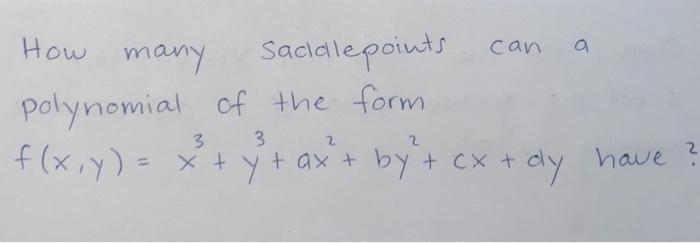 How many Saddlepoints can a
polynomial of the form
f(x,y) = x³ + y³ + ax² + by² + cx + dy have ?